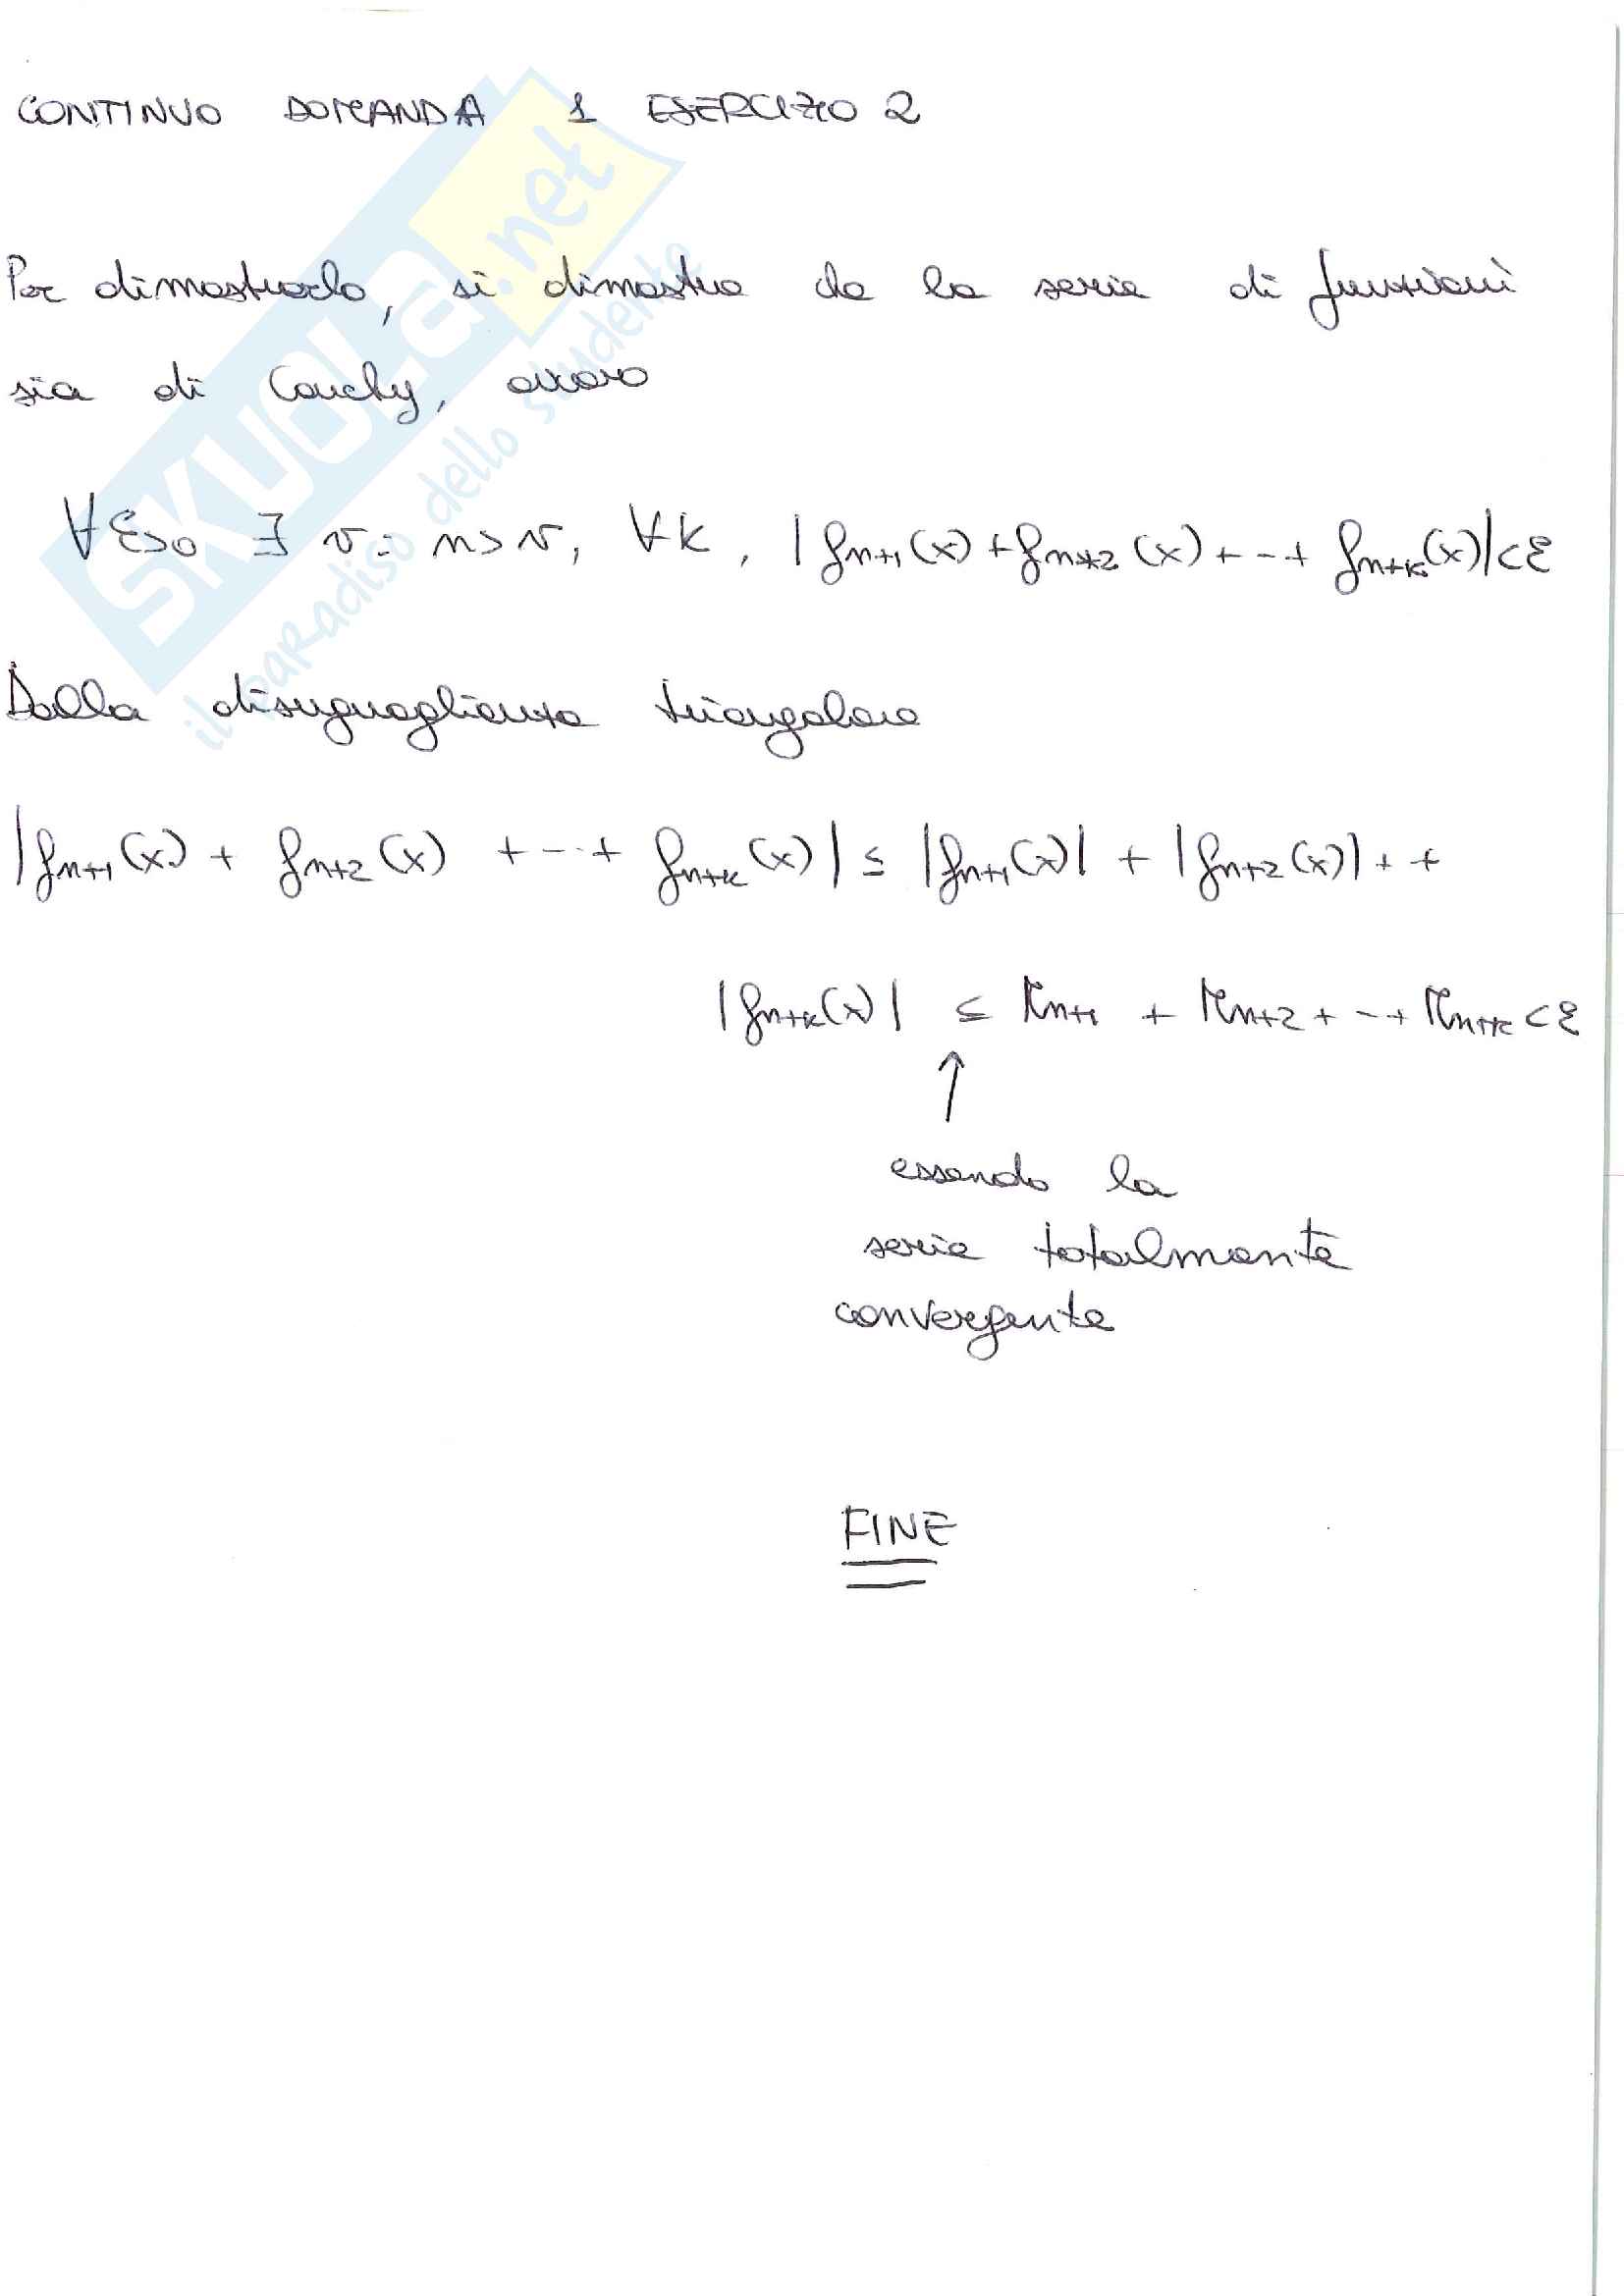 CONTINUO DOMANDA 1 ESERCIZIO 2
Per dimostrarlo, si dimostra che la serie di funzioni
sia di Cauchy, ovvero
∀ε>0 ∃ ν: n>ν, ∀k, |fn+1(x)+fn+2(x)+--+ fn+k(x)|<ε
Dalla disuguaglianza triangolare
|fn+1(x) + fn+2(x) +--+ fn+k(x)| ≤ |fn+1(x)| + |fn+2(x)|+ +
|fn+k(x)| ≤ Mn+1 + Mn+2 + --+ Mn+k <ε
↑
essendo la
serie totalmente
convergente
FINE
SKUOLa.net
il paradiso dello studente